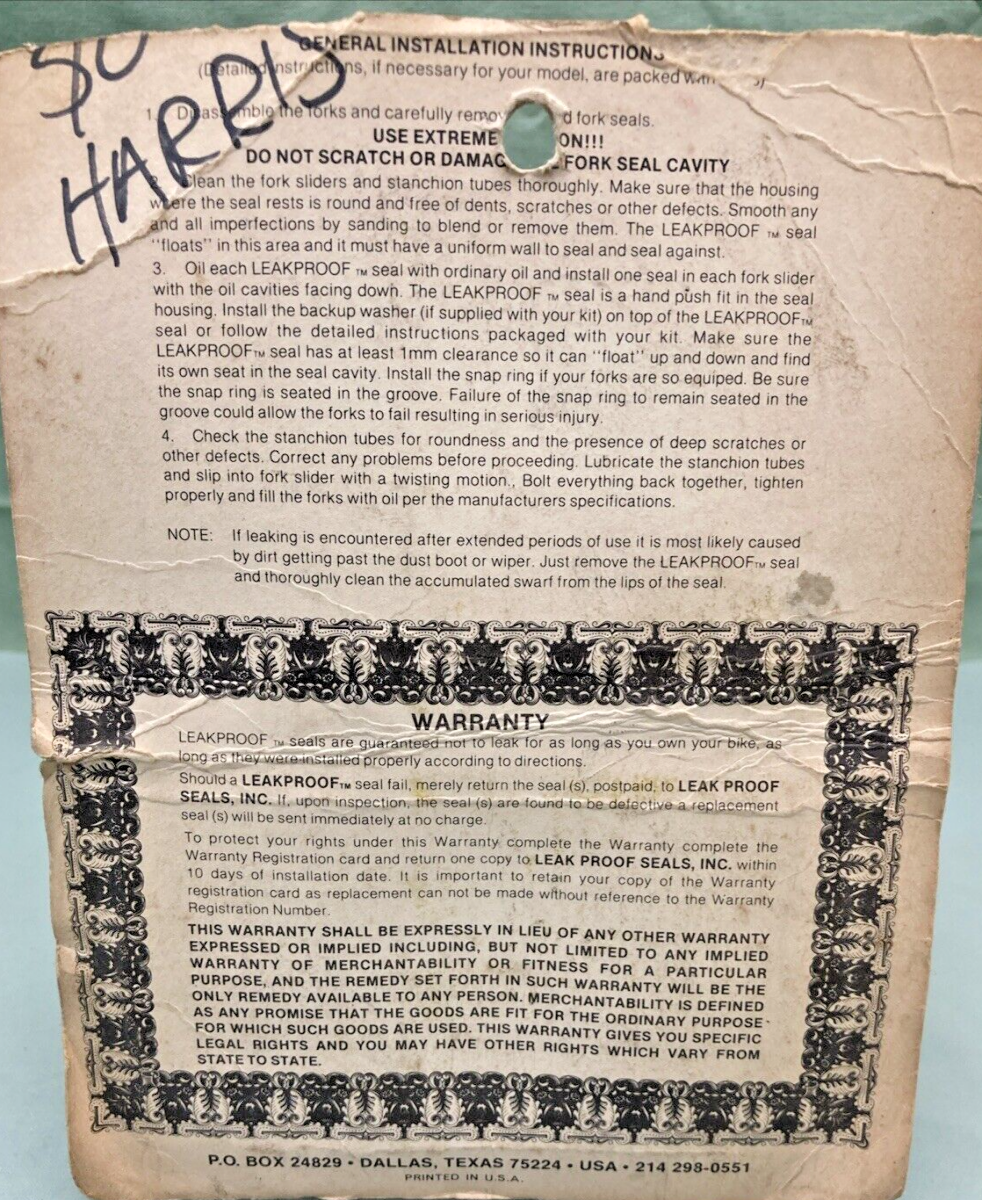 HARRIS
GENERAL INSTALLATION INSTRUCTIONS
(Detailed instructions, if necessary for your model, are packed
1. Disassemble the forks and carefully remo d fork seals.
USE EXTREME ON!!!
DO NOT SCRATCH OR DAMAG FORK SEAL CAVITY
Clean the fork sliders and stanchion tubes thoroughly. Make sure that the housing
where the seal rests is round and free of dents, scratches or other defects. Smooth any
and all imperfections by sanding to blend or remove them. The LEAKPROOF TM seal
"floats" in this area and it must have a uniform wall to seal and seal against.
3. Oil each LEAKPROOF TM seal with ordinary oil and install one seal in each fork slider
with the oil cavities facing down. The LEAKPROOF TM seal is a hand push fit in the seal
housing. Install the backup washer (if supplied with your kit) on top of the LEAKPROOFTM
seal or follow the detailed instructions packaged with your kit. Make sure the
LEAKPROOFTM seal has at least 1mm clearance so it can "float" up and down and find
its own seat in the seal cavity. Install the snap ring if your forks are so equiped. Be sure
the snap ring is seated in the groove. Failure of the snap ring to remain seated in the
groove could allow the forks to fail resulting in serious injury.
4. Check the stanchion tubes for roundness and the presence of deep scratches or
other defects. Correct any problems before proceeding. Lubricate the stanchion tubes
and slip into fork slider with a twisting motion., Bolt everything back together, tighten
properly and fill the forks with oil per the manufacturers specifications.
NOTE: If leaking is encountered after extended periods of use it is most likely caused
by dirt getting past the dust boot or wiper. Just remove the LEAKPROOFTM seal
and thoroughly clean the accumulated swarf from the lips of the seal.
WARRANTY
LEAKPROOF TM seals are guaranteed not to leak for as long as you own your bike, as
long as they were installed properly according to directions.
Should a LEAKPROOFTM seal fail, merely return the seal (s), postpaid, to LEAK PROOF
SEALS, INC. If, upon inspection, the seal (s) are found to be defective a replacement
seal (s) will be sent immediately at no charge.
To protect your rights under this Warranty complete the Warranty complete the
Warranty Registration card and return one copy to LEAK PROOF SEALS, INC. within
10 days of installation date. It is important to retain your copy of the Warranty
registration card as replacement can not be made without reference to the Warranty
Registration Number.
THIS WARRANTY SHALL BE EXPRESSLY IN LIEU OF ANY OTHER WARRANTY
EXPRESSED OR IMPLIED INCLUDING, BUT NOT LIMITED TO ANY IMPLIED
WARRANTY OF MERCHANTABILITY OR FITNESS FOR A PARTICULAR
PURPOSE, AND THE REMEDY SET FORTH IN SUCH WARRANTY WILL BE THE
ONLY REMEDY AVAILABLE TO ANY PERSON. MERCHANTABILITY IS DEFINED
AS ANY PROMISE THAT THE GOODS ARE FIT FOR THE ORDINARY PURPOSE
FOR WHICH SUCH GOODS ARE USED. THIS WARRANTY GIVES YOU SPECIFIC
LEGAL RIGHTS AND YOU MAY HAVE OTHER RIGHTS WHICH VARY FROM
STATE TO STATE.
P.O. BOX 24829 • DALLAS, TEXAS 75224 • USA • 214 298-0551
PRINTED IN U.S.A.